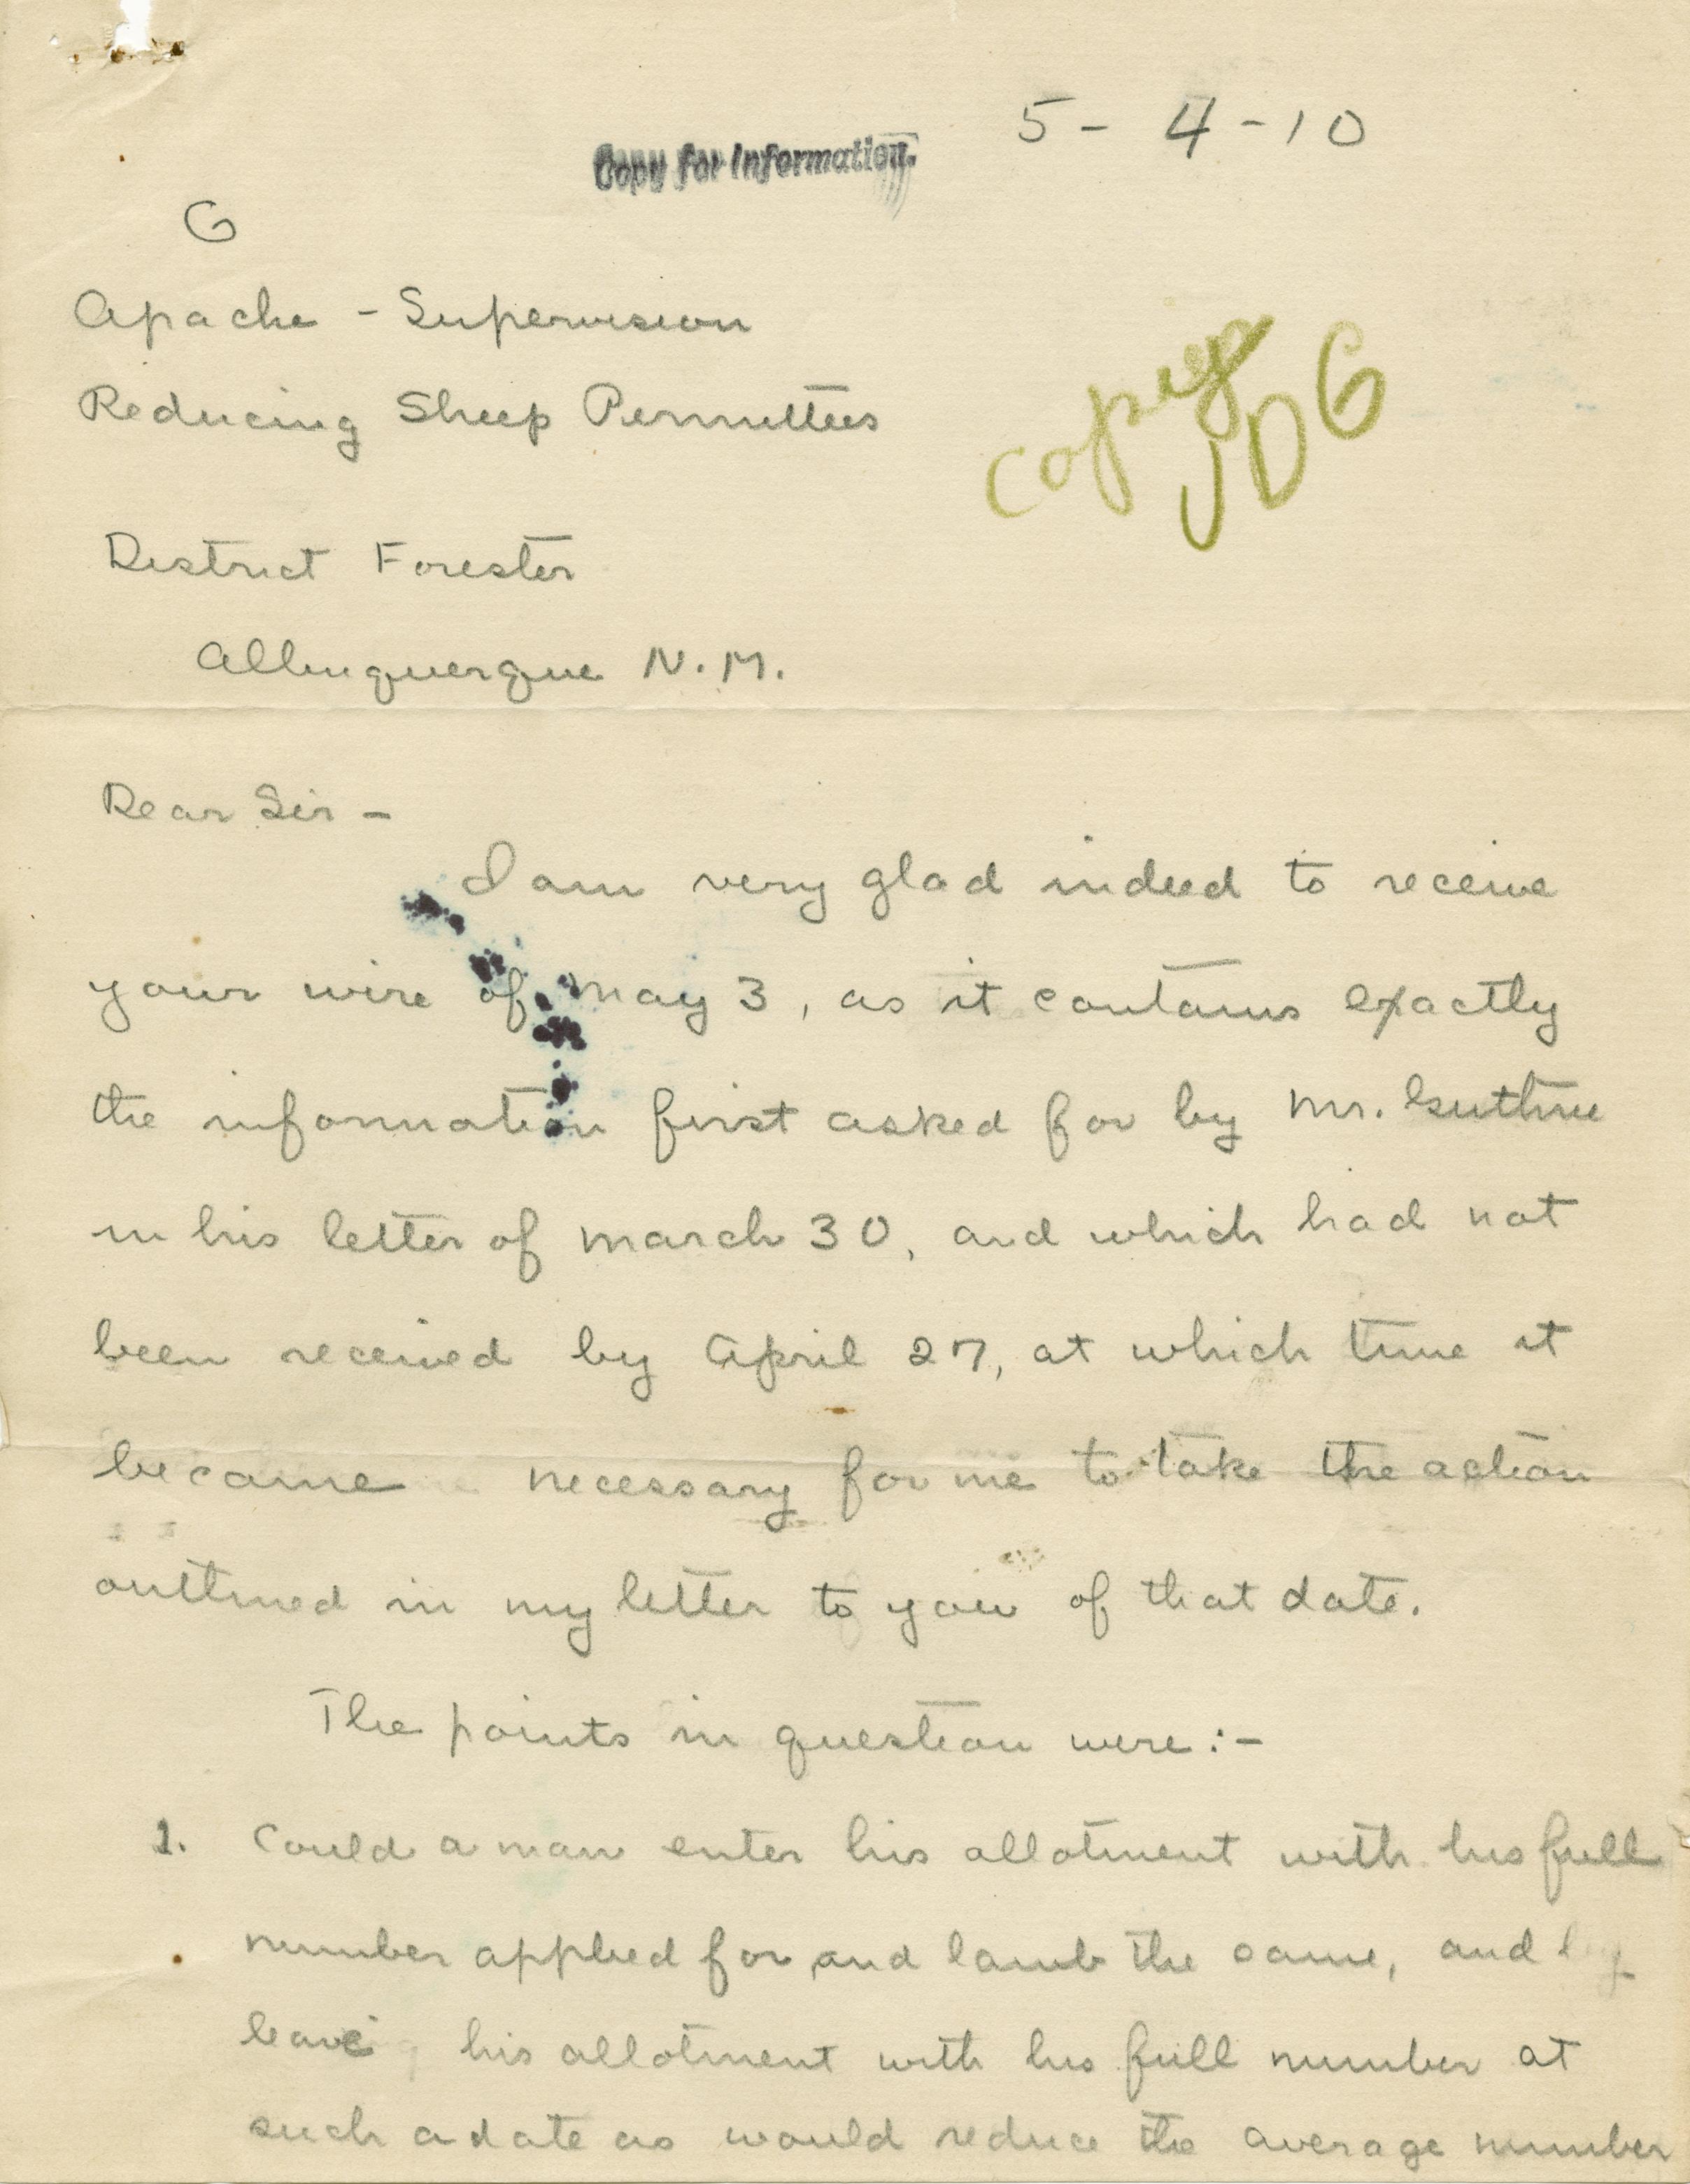 5 - 4 - 10
Copy for Information.
G
Apache - Supervision
Reducing Sheep Permittees
Copy
JDG
District Forester
Albuquerque N.M.
Dear Sir -
I am very glad indeed to receive
your wire of May 3, as it contains exactly
the information first asked for by Mr. Guthrie
in his letter of March 30, and which had not
been received by April 27, at which time it
became necessary for me to take the action
outlined in my letter to you of that date.
The points in question were:-
1. Could a man enter his allotment with his full
number applied for, and lamb the same, and
leave his allotment with his full number at
such a date as would reduce the average number